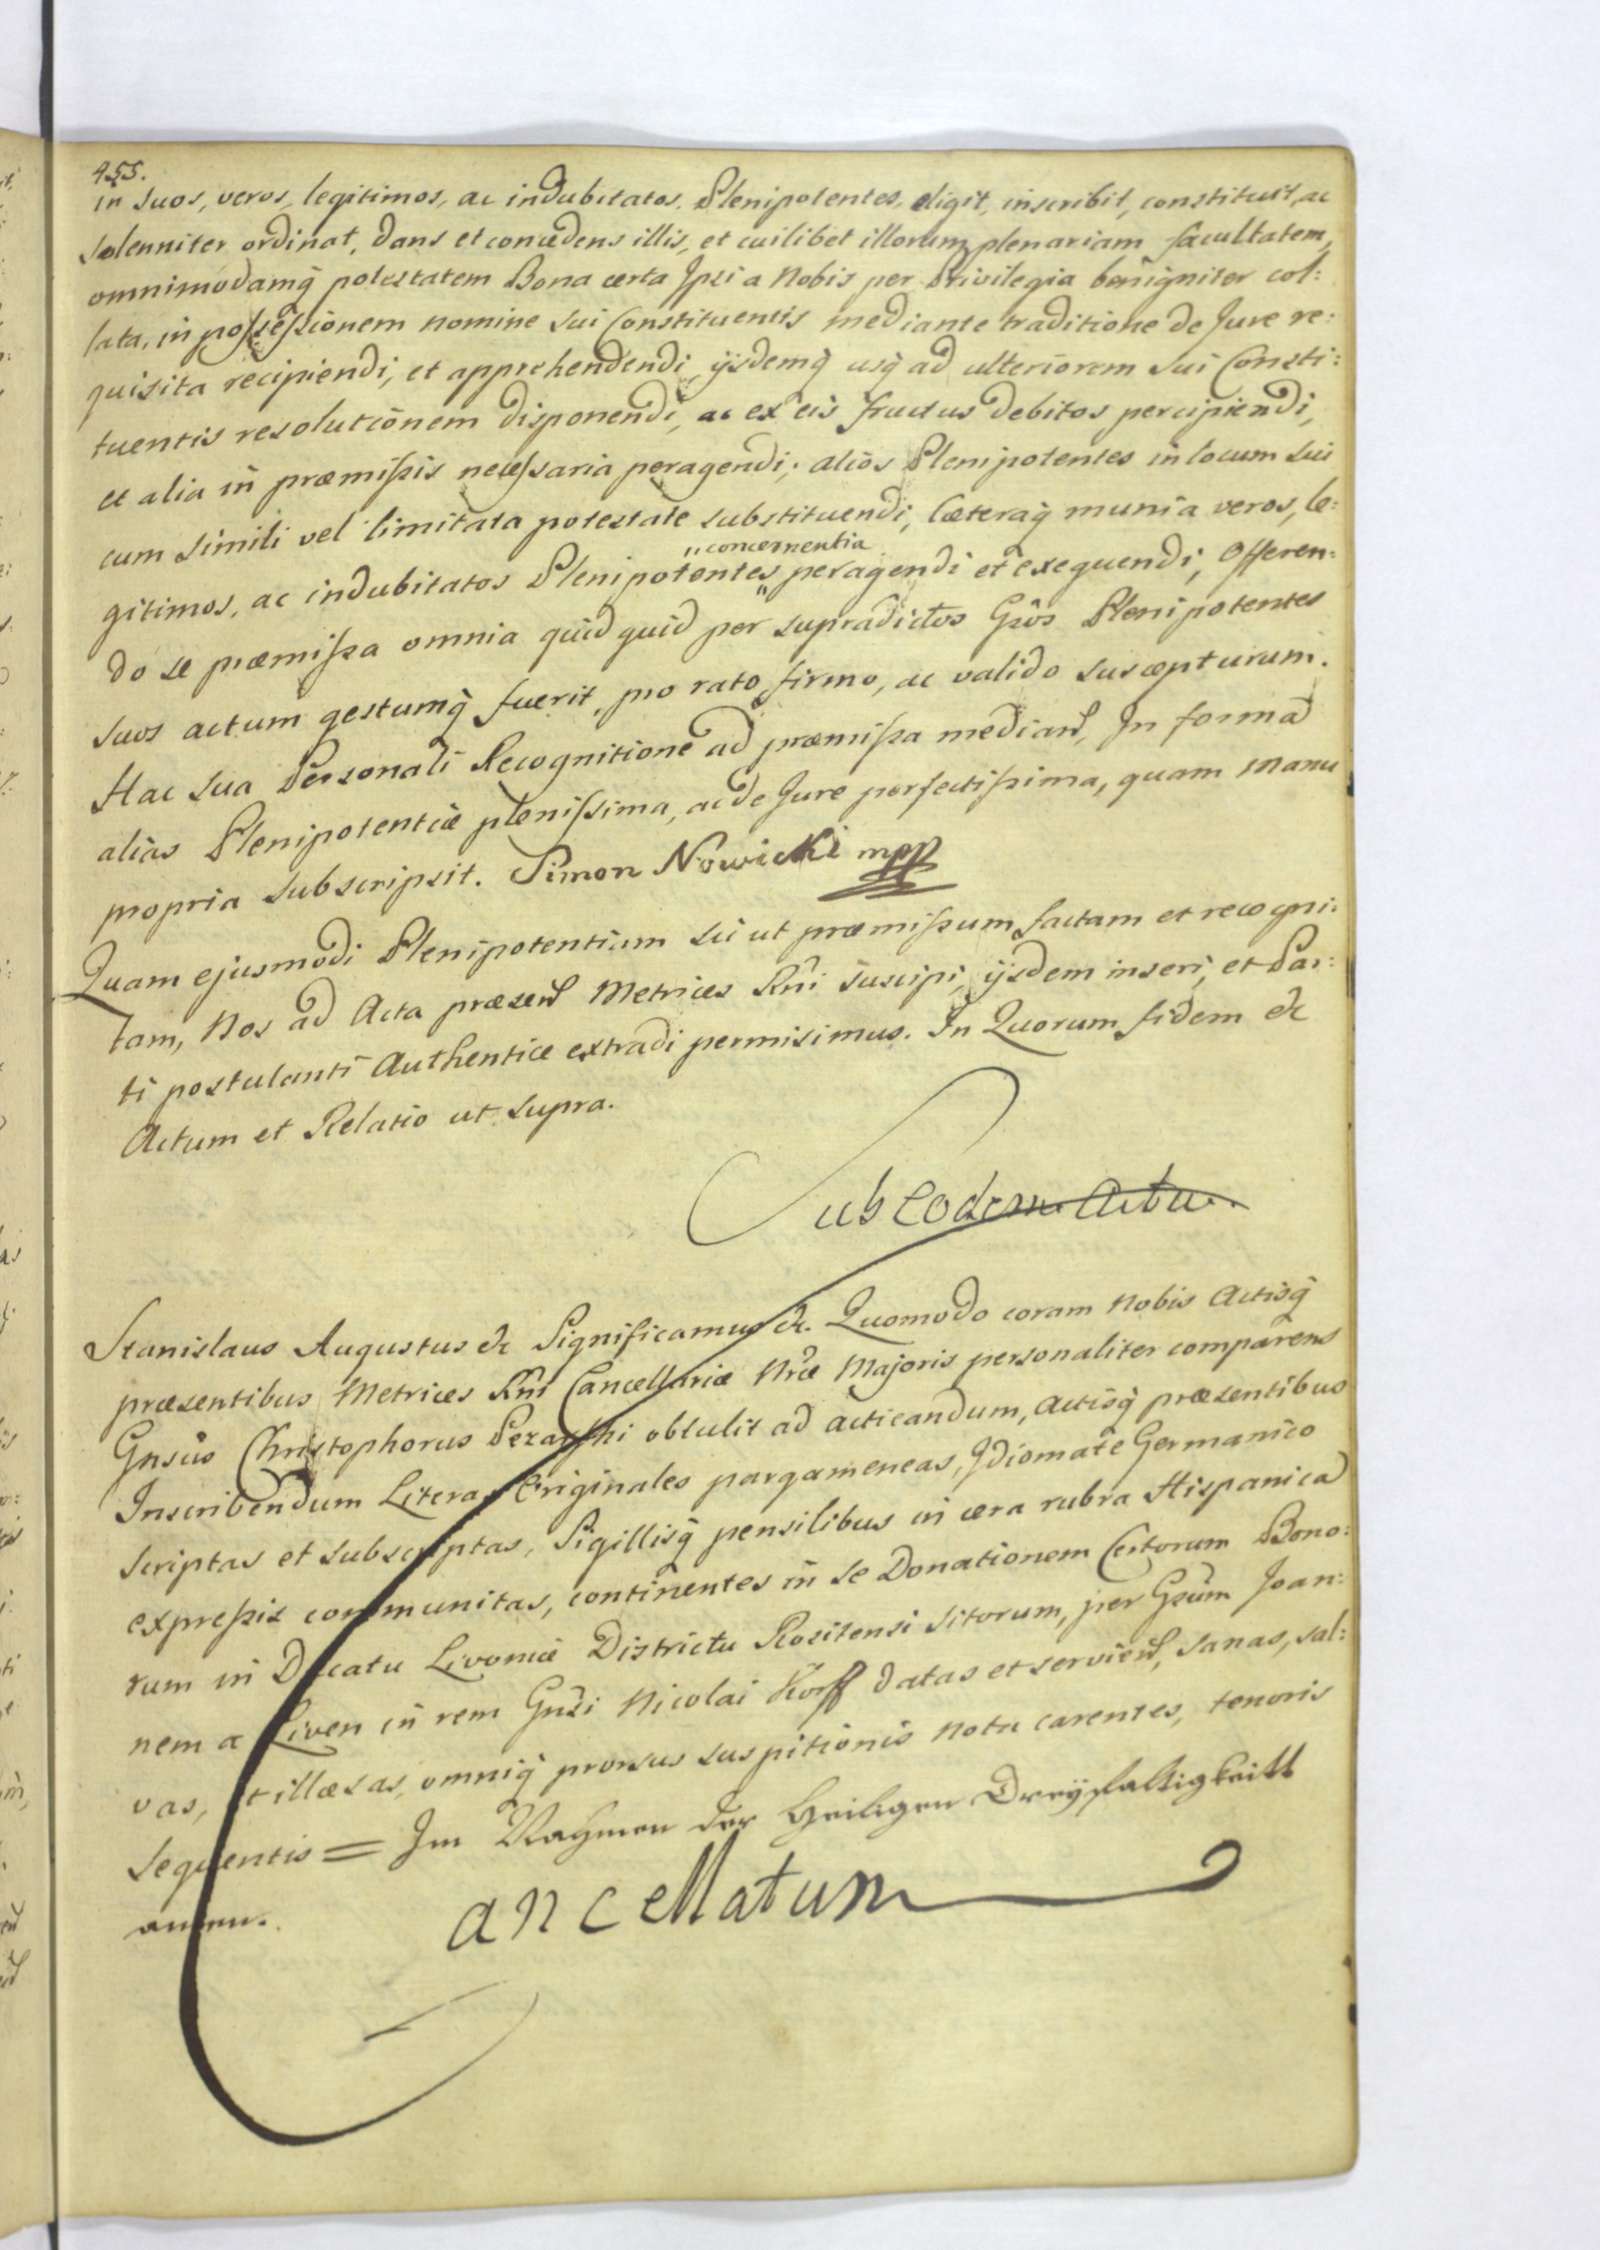 455.
in suos, veros, legitimos, ac indubitatos. Plenipotentes. eligit, inscribit, constituit, ac
solenniter ordinat, dans et concedens illis, et cuilibet illorum plenariam facultatem,
omnimodamq̃ potestatem Bona certa Ipsi a Nobis per Privilegia benigniter col:
lata, in possessionem nomine sui Constituentis mediante traditione de Jure re:
quisita recipiendi, et apprehendendi, ijsdemq̃ usq̃ ad ulteriorem sui Consti:
tuentis resolutionem disponendi, ac ex eis fructus debitos percipiendi,
et alia in præmissis necessaria peragendi; alios Plenipotentes in locum sui
cum simili vel limitata potestate substituendi, Cæteraq̃ munia veros, le:
gitimos, ac indubitatos Plenipotentes "concernentia" peragendi et exequendi, Offeren:
do se præmissa omnia quidquid per supradictos Gsos Plenipotentes
suos actum gestumq̃ fuerit, pro rato firmo, ac valido suscepturum.
Hac sua Personali Recognitione ad præmissa median̄, In forma
alias Plenipotentiæ plenissima, ac de Jure perfectissima, quam Manu
propria subscripsit. Simon Nowicki mpp
Quam ejusmodi Plenipotentiam sic ut præmissum factam et recogni:
tam, Nos ad Acta præsen̄ Metrices Rñi suscipi, ijsdem inseri, et Par:
ti postulanti Authentice extradi permisimus. In Quorum fidem &c
Actum et Relatio ut supra.
Sub Eodem Actu.
Stanislaus Augustus &c Significamus &c. Quomodo coram Nobis Actisq̃
præsentibus Metrices Rñi Cancellariæ Nræ Majoris personaliter comparens
Gnsus Christophorus obtulit ad acticandum, Actisq̃ præsentibus
Inscribendum Literas Originales pargameneas, Idiomate Germanico
scriptas et subscriptas, Sigillisq̃ pensilibus in cera rubra Hispanica
expressis communitas, continentes in se Donationem Certorum Bono:
rum in Ducatu Livoniæ Districtu Rositensi sitorum, per Gsum Joan:
nem a Liven in rem Gnsi Nicolai Korff datas et servien̄, sanas, sal:
vas, et illæsas, omniq̃ prorsus suspitionis nota carentes, tenoris
sequentis = Im Nahmen der Heiligen Dreyfaltigkeitt
amen.
Cancellatum